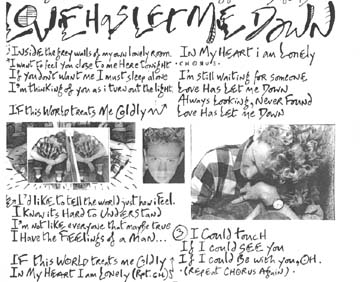 LOVE HAS LET ME DOWN
INSIDE the grey walls of my own lonely room
I want to feel you close to me Here tonight
If you don't want me I must sleep alone
I'm thinking of you as i turn out the light.
IF this WORLD treats Me Coldly
I'd like to tell the world just how i feel.
I know its Hard to UNDERSTAND
I'm not like everyone that maybe true
I Have the Feelings of a Man...
IF this WORLD treats me Coldly
IN My Heart I am Lonely (Rpt.ch)
IN My Heart i am Lonely
·CHORUS·
I'm still waiting for someone
Love Has Let me Down
Always Looking, Never Found
Love Has Let me Down
③ I Could touch
If I could SEE YOU
If I could Be with you, OH.
·(Repeat Chorus Again)·